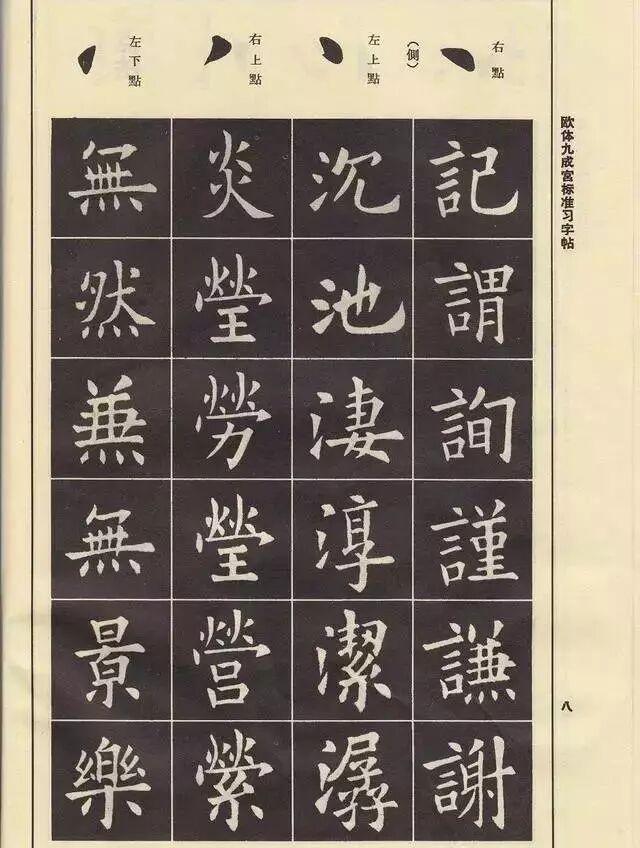 欧体九成宫标准习字帖
八
右點
(側)
左上點
右上點
左下點
記謂詢謹謙謝
沉池淒淳潔潺
炎瑩勞瑩營縈
無然兼無景樂